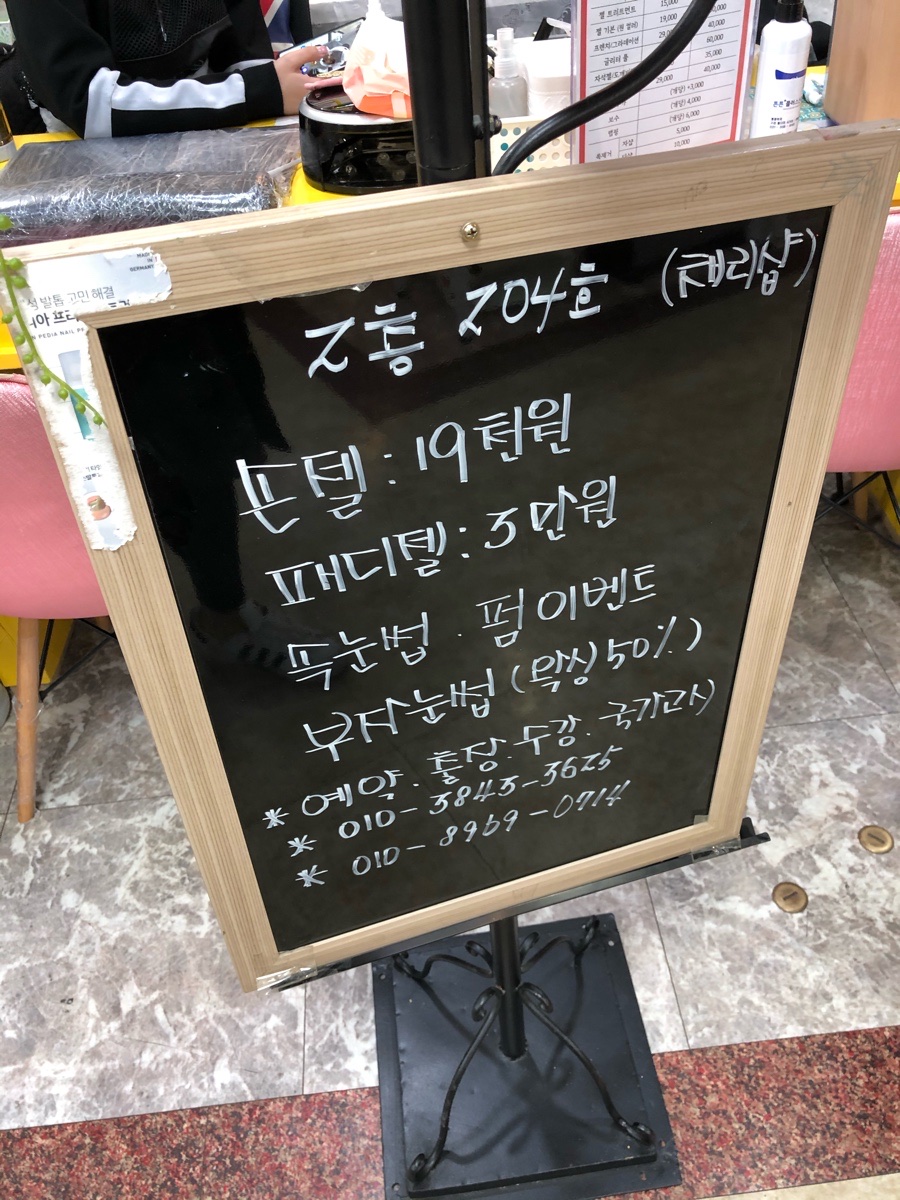 젤 트리트먼트 15,000
젤 기본(원 컬러) 19,000 40,000
프렌치/그라데이션 29,000 60,000
글리터 풀 35,000
29,000 40,000
(개당) +3,000
(개당) 4,000
보수 (개당) 6,000
랩핑 5,000
자샵 10,000
MADE IN GERMANY
발톱 고민 해결
PEDIA NAIL
2층 204호 (채리샵)
손텔 : 19천원
패디텔 : 3만원
속눈썹 · 펌이벤트
부자눈썹 (왁싱 50%)
* 예약 · 출장 · 수강 · 국가고시
* 010-3843-3625
* 010-8969-0714